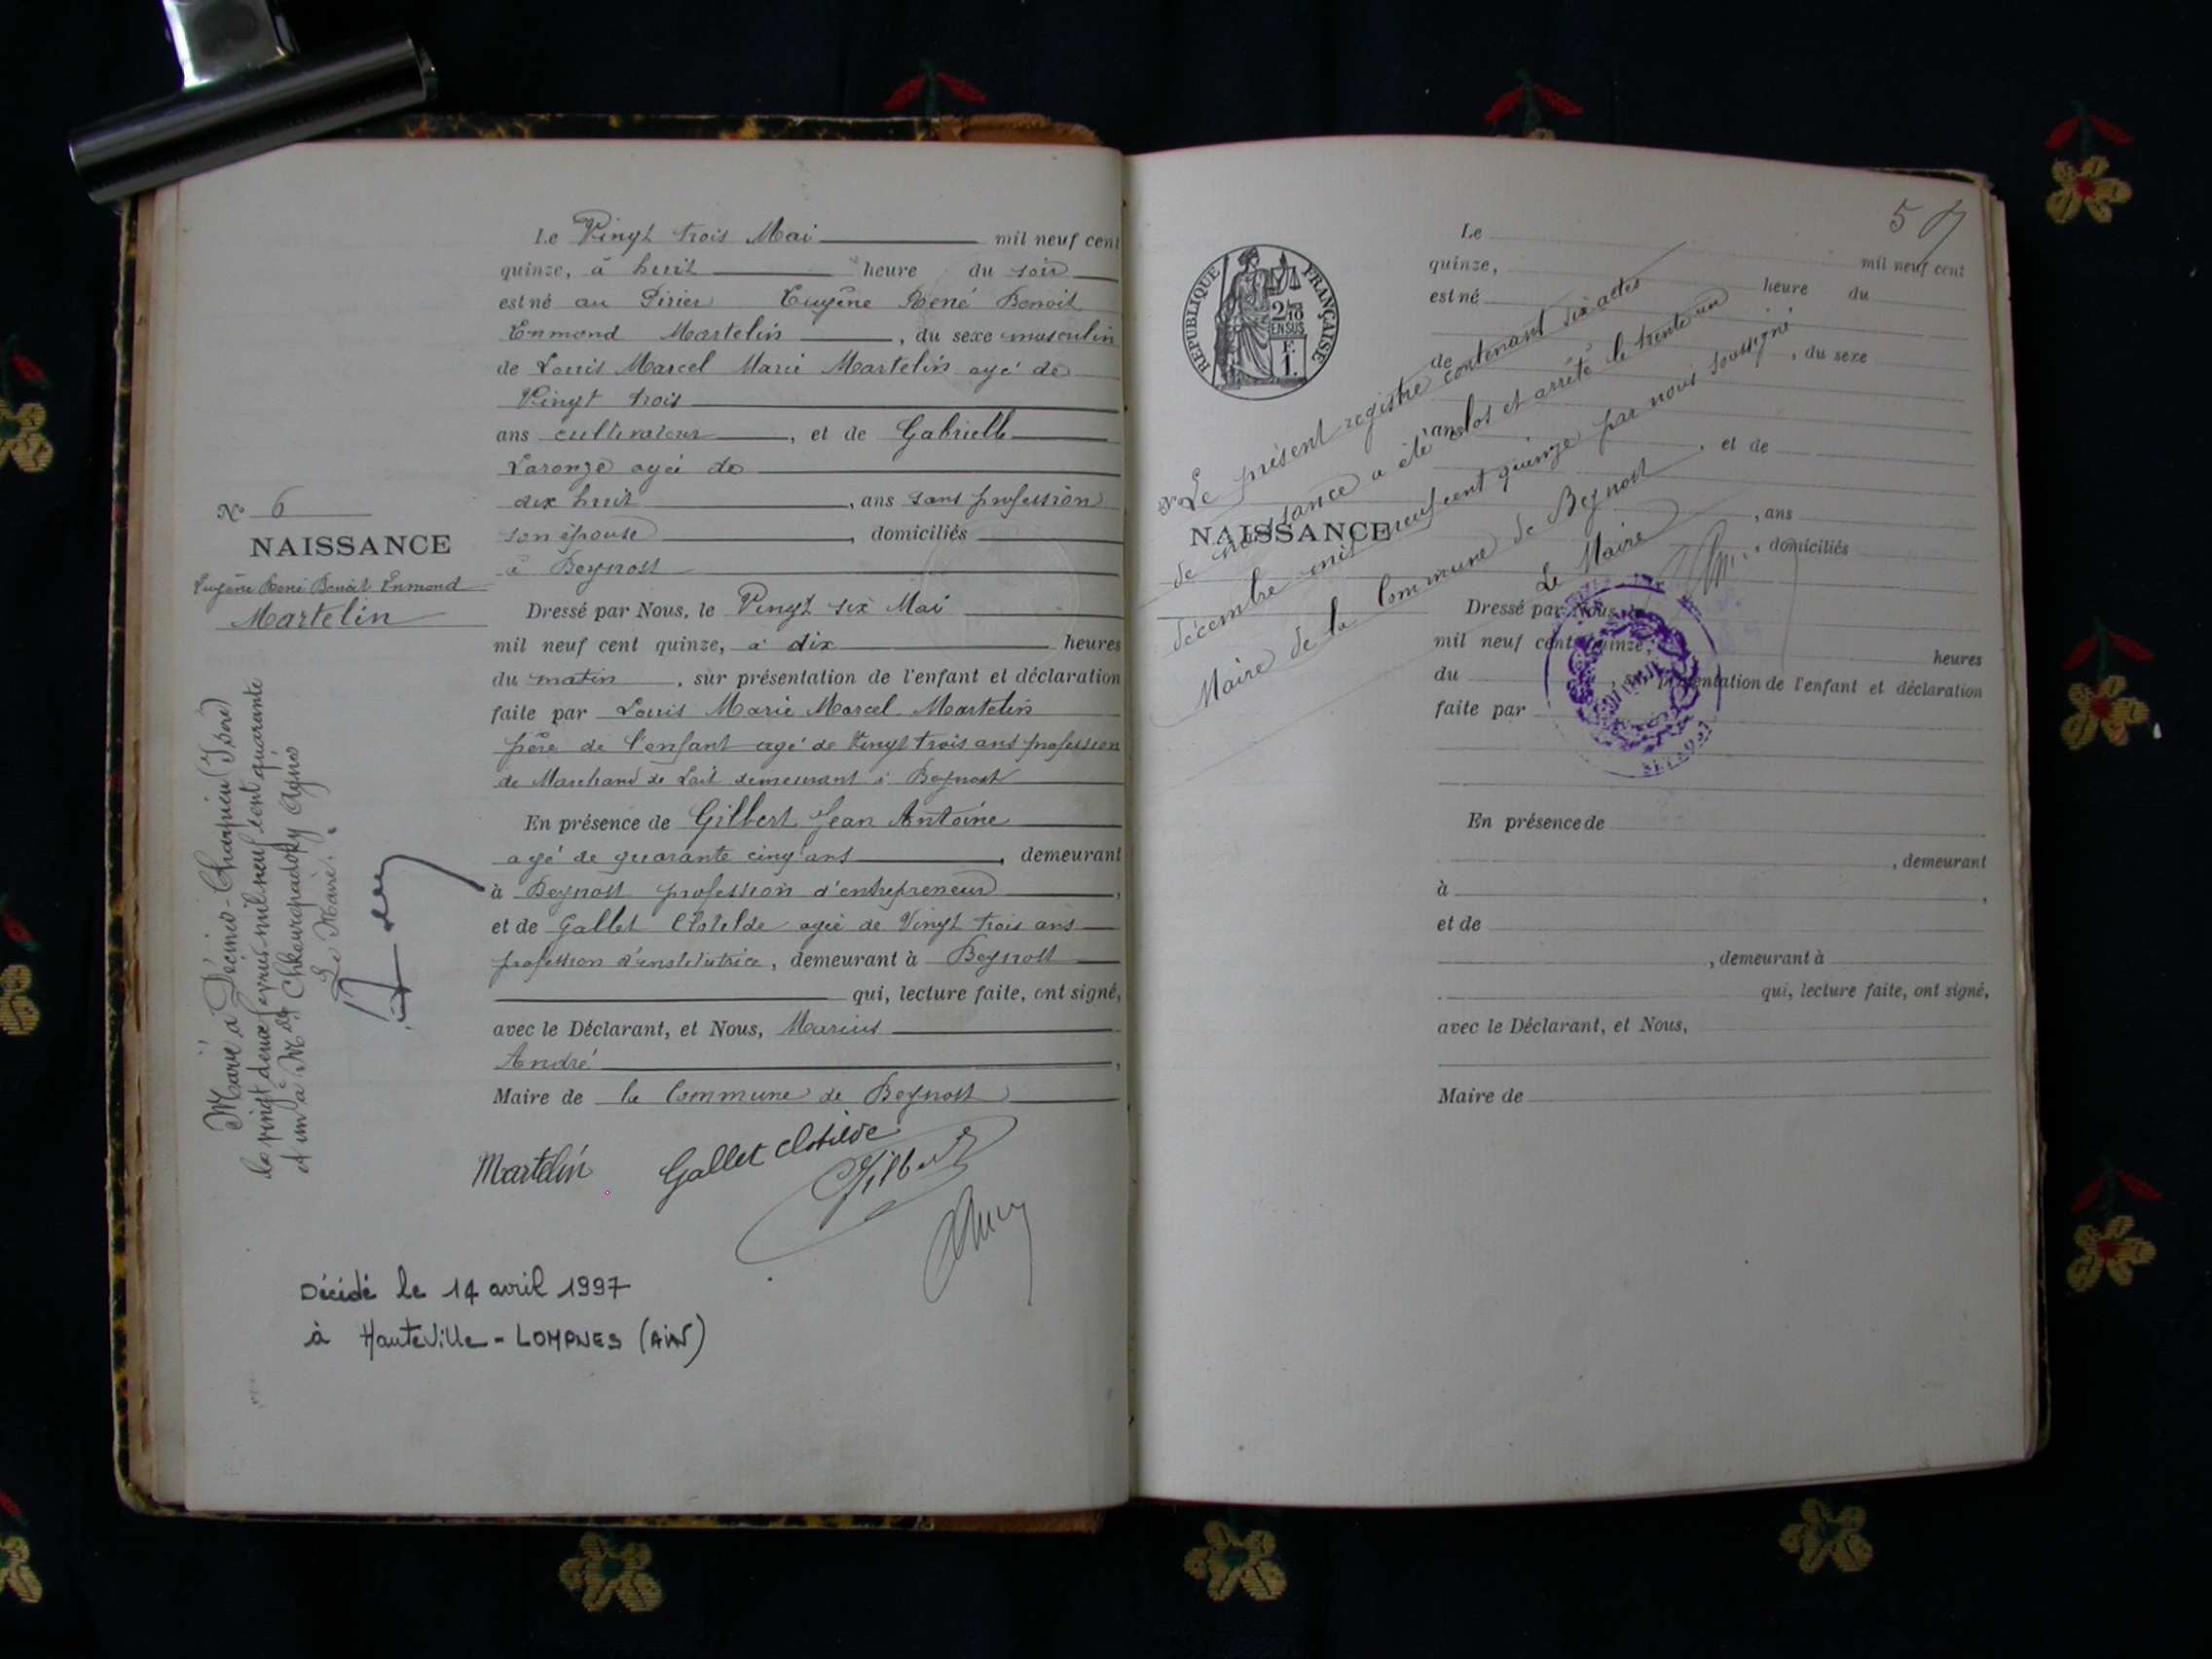 Le Vingt trois Mai mil neuf cent
quinze, à huit heure du soir
est né au Eugène René Benoit
Enmond Martelin, du sexe masculin
de Louis Marcel Marie Martelin agé de
Vingt trois
ans cultivateur, et de Gabrielle
Laronze agée de
dix huit, ans sans profession
son épouse, domiciliés
à Beynost
No 6
NAISSANCE
Eugène René Benoit Enmond
Martelin
Dressé par Nous, le Vingt six Mai
mil neuf cent quinze, à dix heures
du matin, sur présentation de l'enfant et déclaration
faite par Louis Marie Marcel Martelin
père de l'enfant agé de Vingt trois ans profession
de Marchand de Lait demeurant à Beynost
En présence de Gilbert Jean Antoine
agé de quarante cinq ans, demeurant
à Beynost profession d'entrepreneur,
et de Gallet Clotilde agée de Vingt trois ans
profession d'institutrice, demeurant à Beynost
qui, lecture faite, ont signé,
avec le Déclarant, et Nous, Marius
André,
Maire de la Commune de Beynost
Martelin Gallet Clotilde
Gilbert
Marié à Décines-Charpieu (Isère)
le vingt deux mil neuf cent quarante
et un à Agnès
Le Maire.
Décédé le 14 avril 1997
à Hauteville-LOMPNES (AIN)
57
REPUBLIQUE FRANÇAISE
2/10
EN SUS
F.
1.
Le mil neuf cent
quinze, heure du
est né
, du sexe
de
ans, et de
, ans
, domiciliés
No
NAISSANCE
Le présent registre contenant six actes
de naissance a été clos et arrêté le trente un
décembre mil neuf cent quinze par nous soussigné
Maire de la Commune de Beynost
Le Maire
Dressé par Nous, le
mil neuf cent quinze, heures
du, sur présentation de l'enfant et déclaration
faite par
En présence de
, demeurant
à,
et de
, demeurant à
qui, lecture faite, ont signé,
avec le Déclarant, et Nous,
Maire de